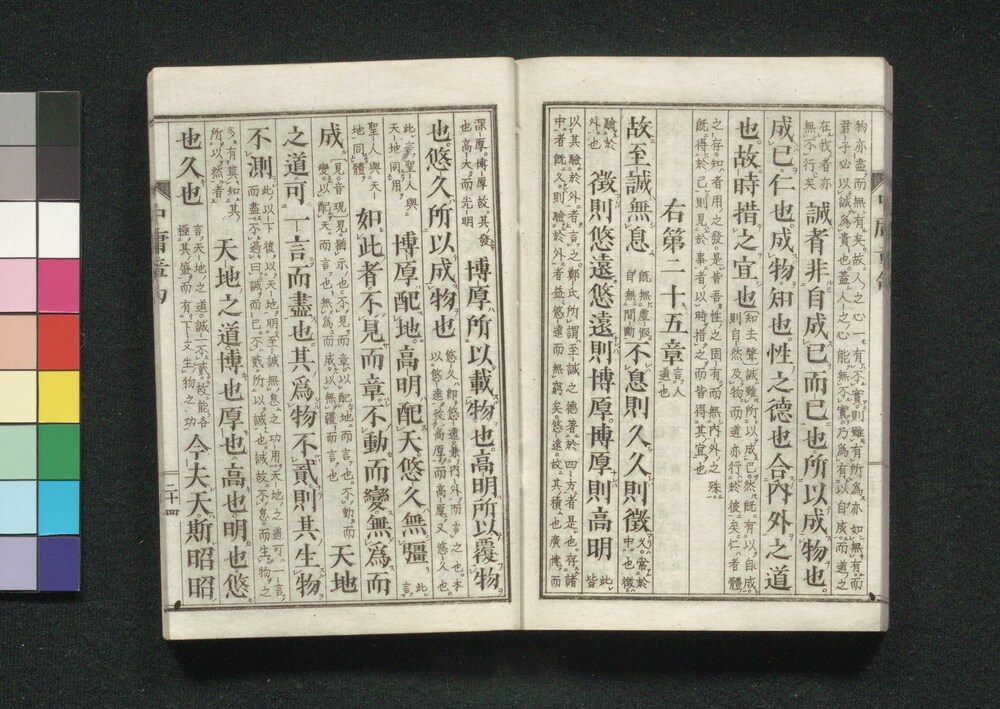 物亦盡而無有矣故人之心一有不實則雖有所爲亦如無有而
君子必以誠爲貴也蓋人之心能無不實乃爲有以自成而道之
在我者亦無不行矣 誠者非自成己而已也所以成物也
成己仁也成物知也性之德也合內外之道
也故時措之宜也 知去聲誠雖所以成己然既有以自成則自然及物而道亦行於彼矣仁者體
之存知者用之發是皆吾性之固有而無內外之殊
既得於己則見於事者以時措之而皆得其宜也
右第二十五章 言人道也
故至誠無息 既無虛假自無間斷 不息則久久則徵 久常於中也徵
驗於外也 徵則悠遠悠遠則博厚博厚則高明 此皆
以其驗於外者言之鄭氏所謂至誠之德著於四方者是也存諸
中者既久則驗於外者益悠遠而無窮矣悠遠故其積也廣博而
深厚博厚故其發也高大而光明 博厚所以載物也高明所以覆物
也悠久所以成物也 悠久即悠遠兼內外而言之也本以悠遠致高厚而高厚又悠久也
此言聖人與天地同用 博厚配地高明配天悠久無疆 此言
聖人與天地同體 如此者不見而章不動而變無爲而
成 見音現見猶示也不見而章以配地而言也不動而變以配天而言也無爲而成以無疆而言也 天地
之道可一言而盡也其爲物不貳則其生物
不測 此以下復以天地明至誠無息之功用天地之道可一言而盡不過曰誠而已不貳所以誠也誠故不息而生物之
多有莫知其所以然者 天地之道博也厚也高也明也悠
也久也 言天地之道誠一不貳故能各極其盛而有下文生物之功 今夫天斯昭昭
二十四